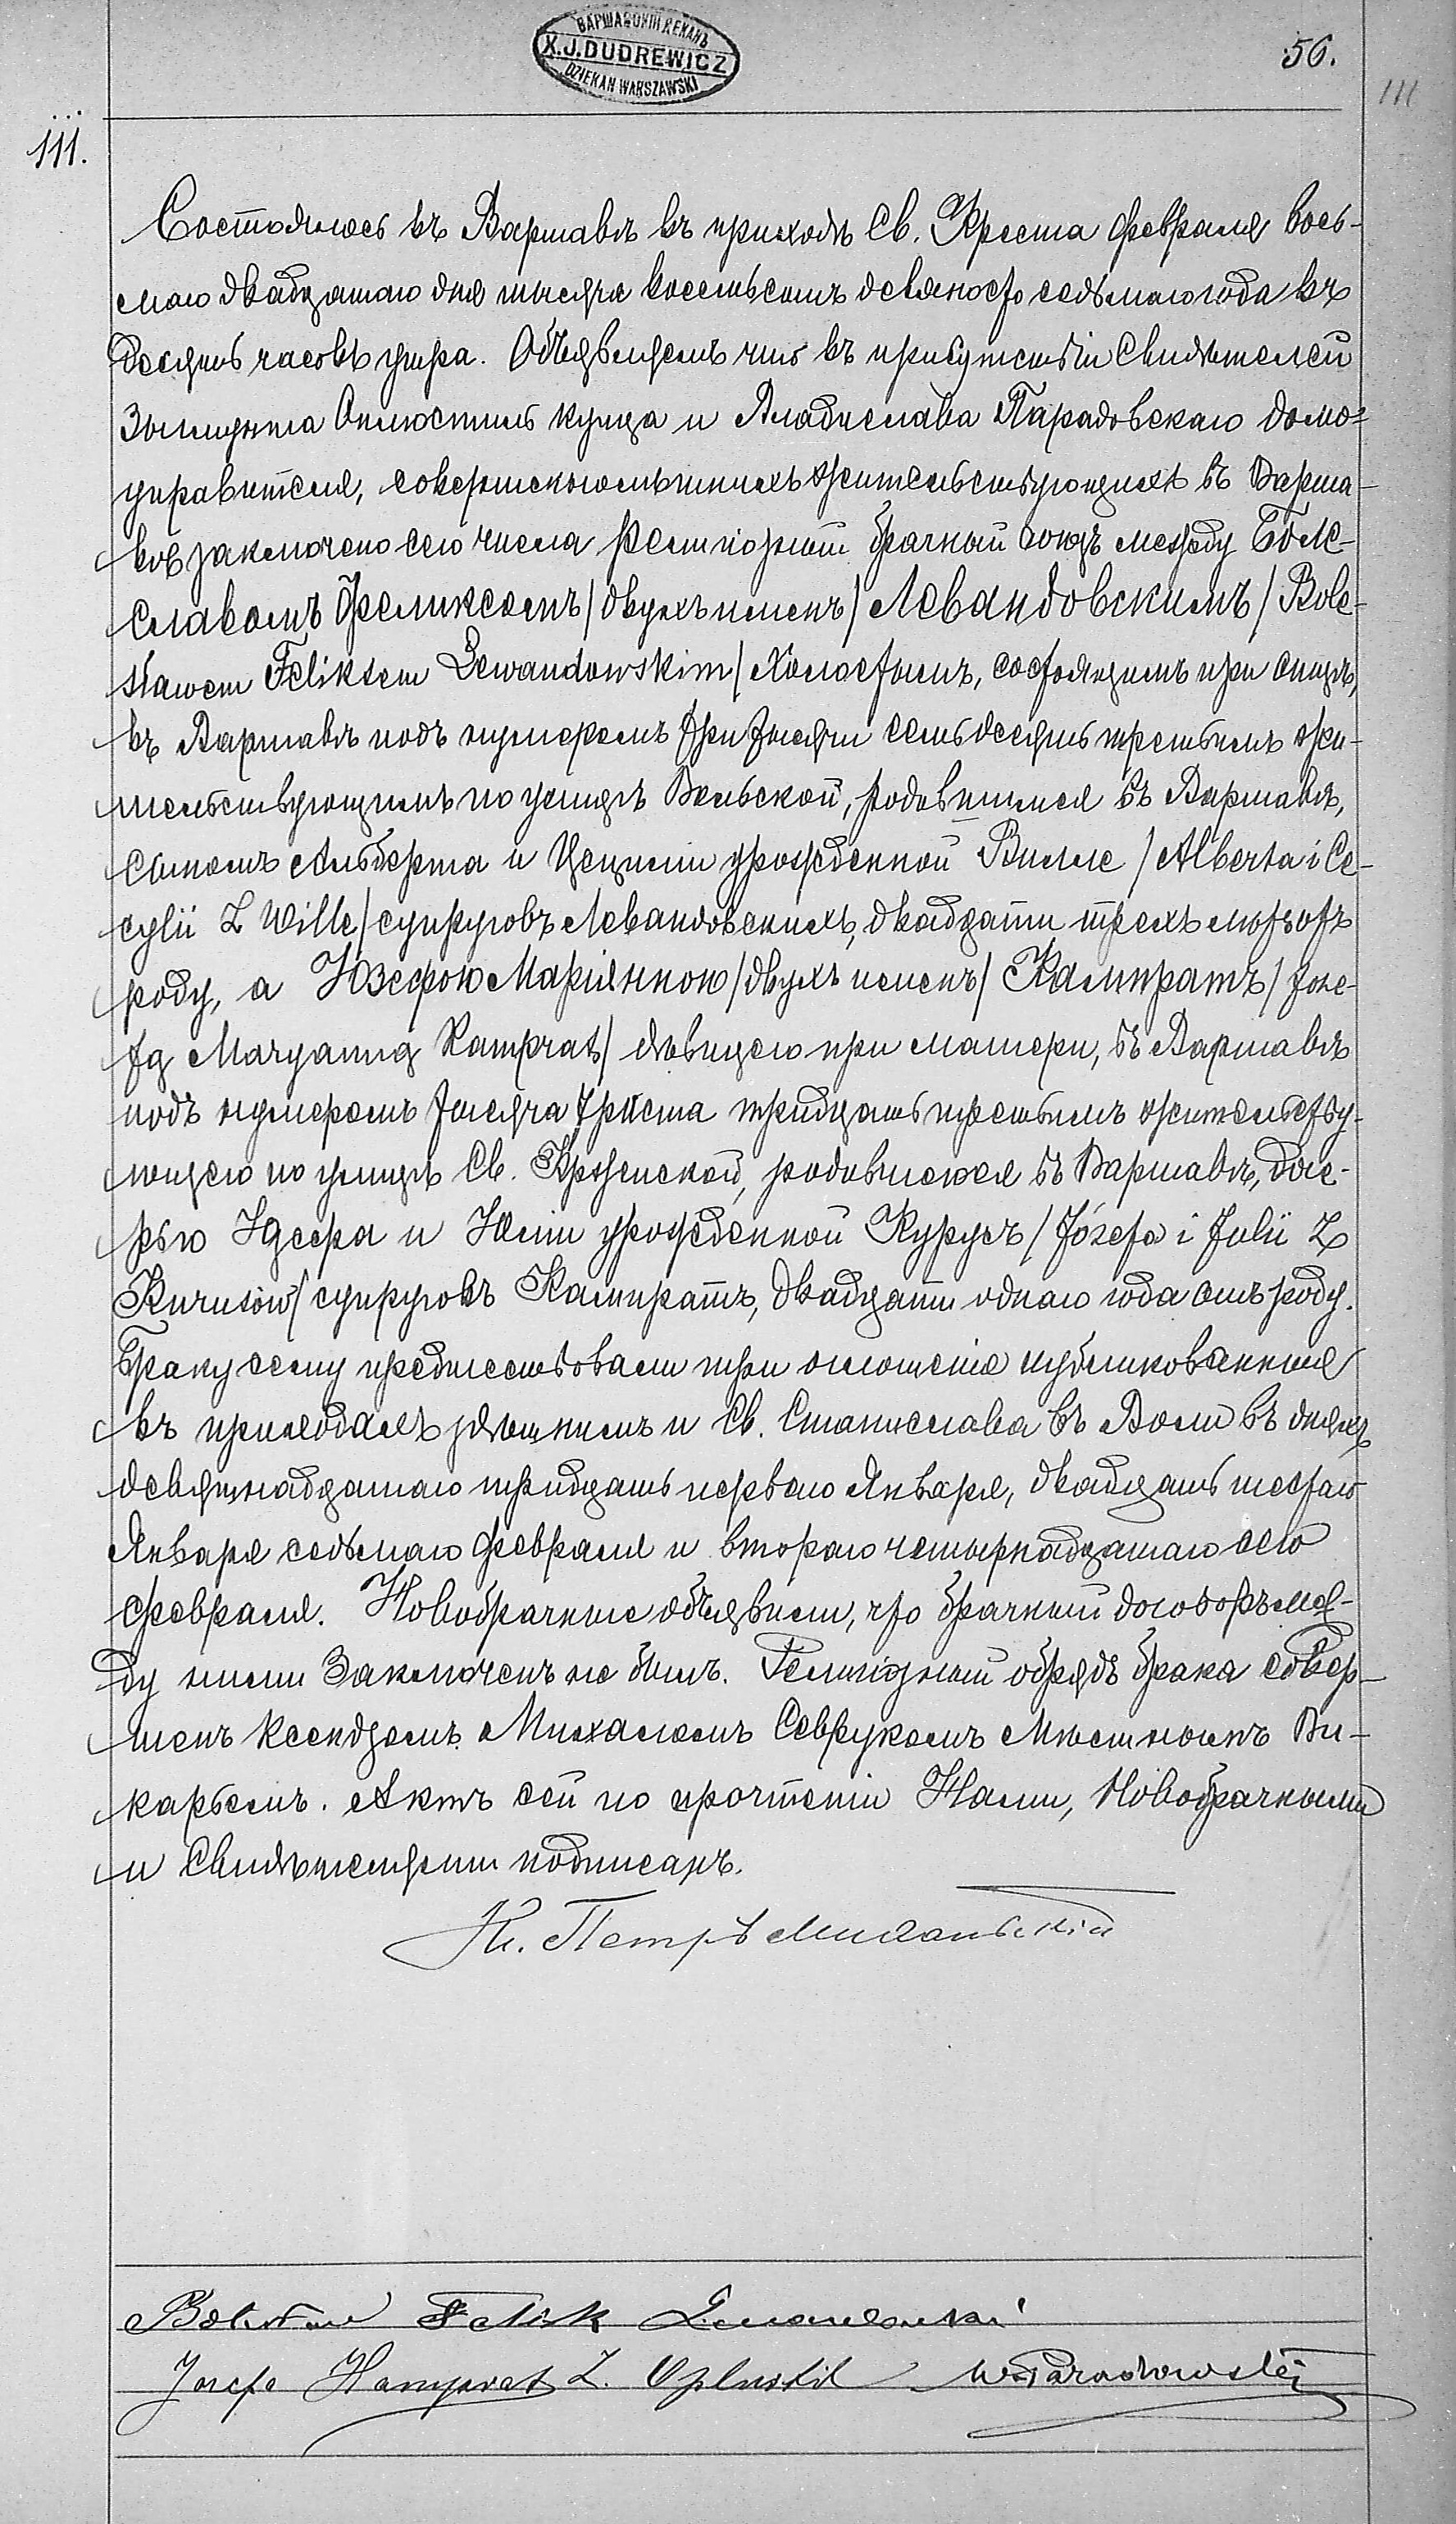 ВАРШАВСКІЙ ДЕКАНЪ
X. J. DUDREWICZ
DZIEKAN WARSZAWSKI
56.
111
111.
Состоялось въ Варшавѣ въ приходѣ Св. Креста февраля вось-
маго двадцатаго дня тысяча восемьсотъ девяносто седьмаго года въ
десять часовъ утра. Объявляемъ что въ присутствіи свидѣтелей
Зыгмунта Оплюстиль купца и Владислава Парадовскаго домо-
управителя, совершеннолѣтнихъ жительствующихъ въ Варша-
вѣ заключенъ сего числа религіозный брачный союзъ между Боле-
славомъ Феликсомъ /двухъ именъ/ Левандовскимъ / Bole-
sławem Feliksem Lewandowskim / холостымъ, состоящимъ при отцѣ,
въ Варшавѣ подъ нумеромъ три тысячи семьдесятъ третьимъ жи-
тельствующимъ по улицѣ Вольской, родившимся въ Варшавѣ,
сыномъ Альберта и Цециліи урожденной Вилле / Alberta i Ce-
cylii z Wille / супруговъ Левандовскихъ, двадцати трехъ лѣтъ отъ
роду, а Юзефою Маріянною /двухъ именъ/ Кампратъ / Joze-
fą Maryanną Kamprat / дѣвицею при матери, въ Варшавѣ
подъ нумеромъ тысяча триста тридцать третьимъ жительству-
ющею по улицѣ Св. Кржиской, родившеюся въ Варшавѣ, доче-
рью Юзефа и Юліи урожденной Курусъ / Józefa i Julii z
Kurusów / супруговъ Кампратъ, двадцати одного года отъ роду.
Браку сему предшествовали три оглашенія публикованныя
въ приходахъ здѣшнемъ и Св. Станислава въ Воли въ дняхъ
девятнадцатаго тридцать перваго Января, двадцать шестаго
Января седьмаго февраля и втораго четырнадцатаго сего
февраля. Новобрачные объявили, что брачный договоръ меж-
ду ними заключенъ не былъ. Религіозный обрядъ брака совер-
шенъ Ксендзомъ Михаломъ Севрукомъ мѣстнымъ Ви-
каріемъ. Актъ сей по прочтеніи Нами, Новобрачными
и свидѣтелями подписанъ.
Кс. Петръ
Bolesław Felik Lewandowski
Józefa Kamprat Z. Oplustil W. Paradowski